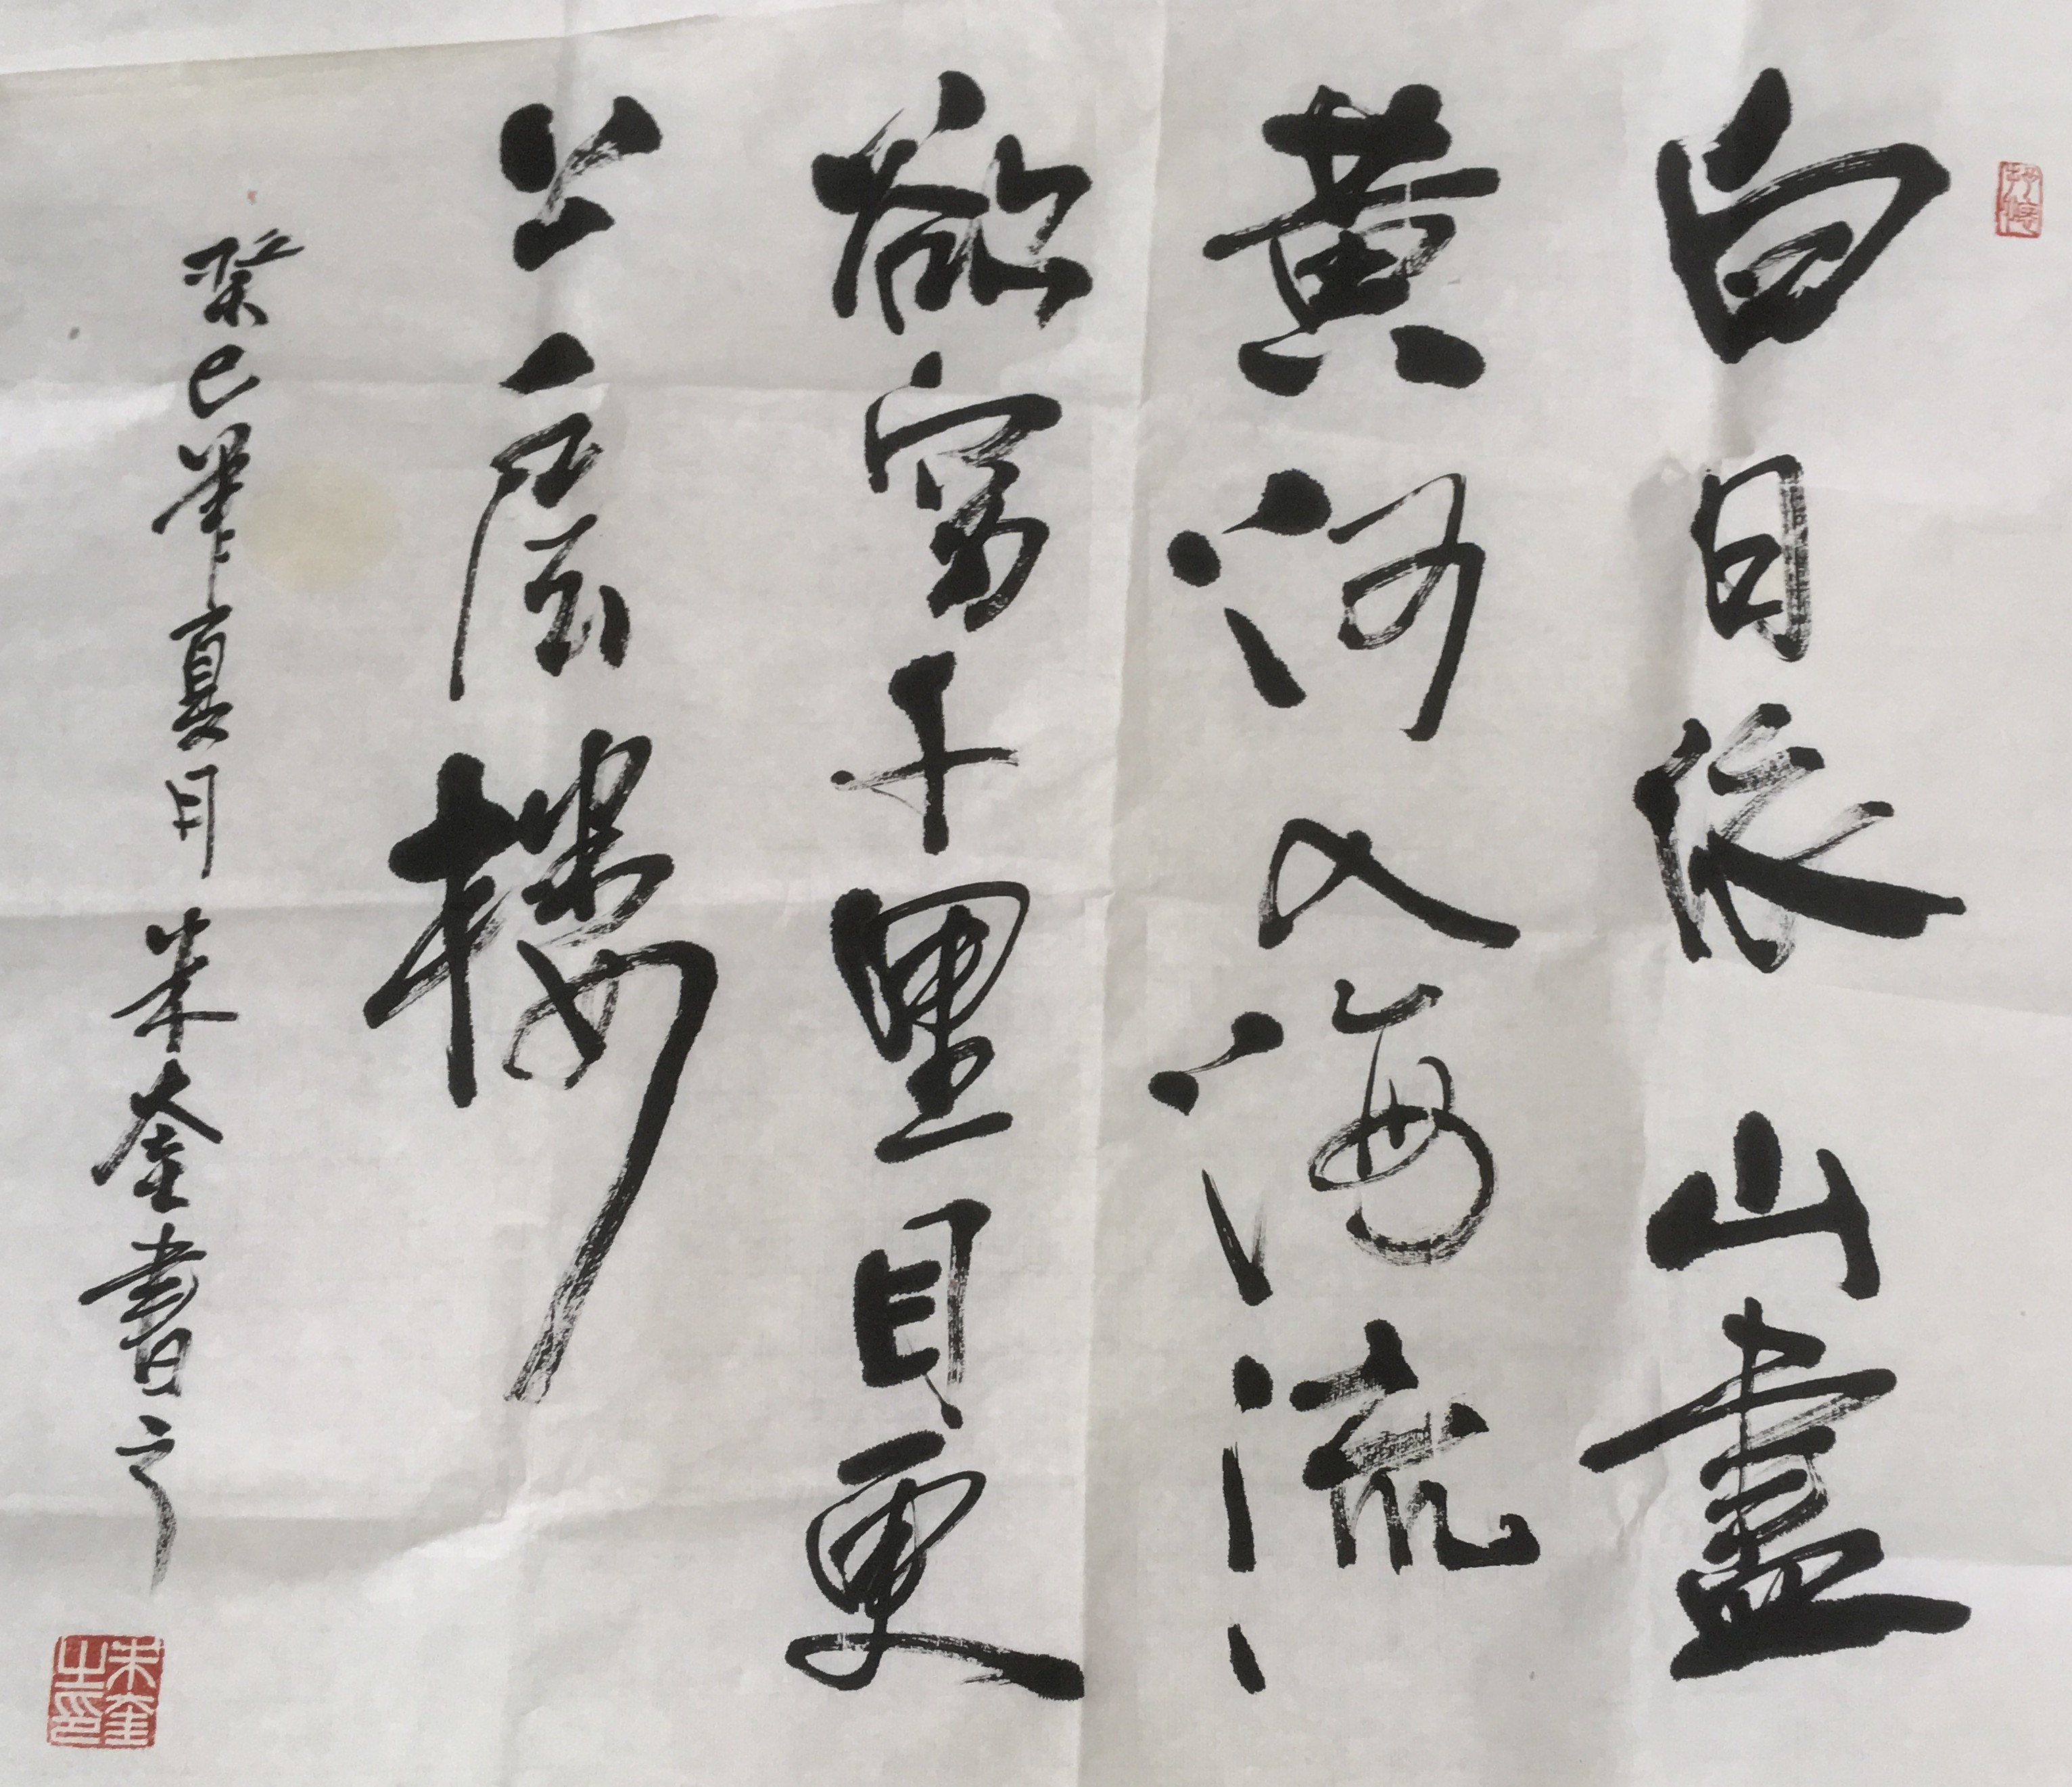 白日依山盡
黄河入海流
欲穷千里目更
上一层樓
癸巳年夏月朱奎書之
朱奎之印